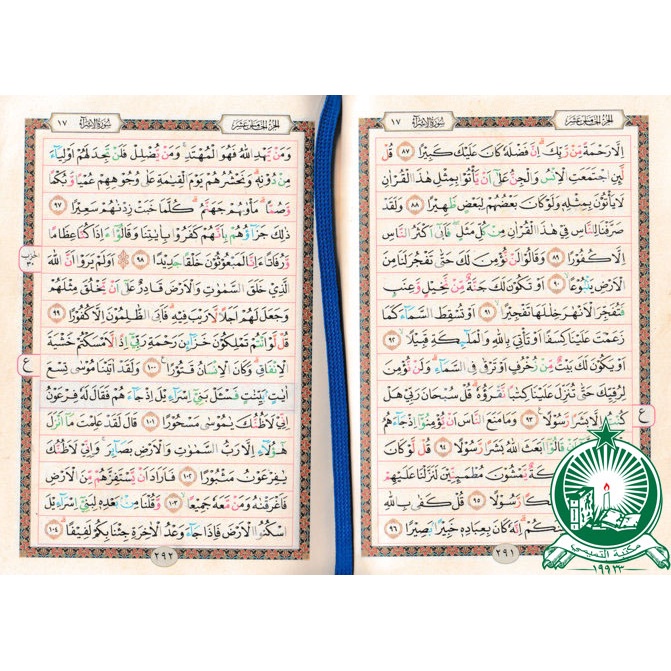 الجزء الخامس عشر سورة الإسراء ١٧
إِلَّا رَحْمَةً مِنْ رَبِّكَ إِنَّ فَضْلَهُ كَانَ عَلَيْكَ كَبِيرًا ٨٧ قُلْ
لَئِنِ اجْتَمَعَتِ الْإِنْسُ وَالْجِنُّ عَلَى أَنْ يَأْتُوا بِمِثْلِ هَذَا الْقُرْآنِ
لَا يَأْتُونَ بِمِثْلِهِ وَلَوْ كَانَ بَعْضُهُمْ لِبَعْضٍ ظَهِيرًا ٨٨ وَلَقَدْ
صَرَّفْنَا لِلنَّاسِ فِي هَذَا الْقُرْآنِ مِنْ كُلِّ مَثَلٍ فَأَبَى أَكْثَرُ النَّاسِ
إِلَّا كُفُورًا ٨٩ وَقَالُوا لَنْ نُؤْمِنَ لَكَ حَتَّى تَفْجُرَ لَنَا مِنَ
الْأَرْضِ يَنْبُوعًا ٩٠ أَوْ تَكُونَ لَكَ جَنَّةٌ مِنْ نَخِيلٍ وَعِنَبٍ
فَتُفَجِّرَ الْأَنْهَارَ خِلَالَهَا تَفْجِيرًا ٩١ أَوْ تُسْقِطَ السَّمَاءَ كَمَا
زَعَمْتَ عَلَيْنَا كِسَفًا أَوْ تَأْتِيَ بِاللَّهِ وَالْمَلَائِكَةِ قَبِيلًا ٩٢
أَوْ يَكُونَ لَكَ بَيْتٌ مِنْ زُخْرُفٍ أَوْ تَرْقَى فِي السَّمَاءِ وَلَنْ نُؤْمِنَ
لِرُقِيِّكَ حَتَّى تُنَزِّلَ عَلَيْنَا كِتَابًا نَقْرَؤُهُ قُلْ سُبْحَانَ رَبِّي هَلْ
كُنْتُ إِلَّا بَشَرًا رَسُولًا ٩٣ وَمَا مَنَعَ النَّاسَ أَنْ يُؤْمِنُوا إِذْ جَاءَهُمُ
قَالُوا أَبَعَثَ اللَّهُ بَشَرًا رَسُولًا ٩٤ قُلْ لَوْ كَانَ
يَمْشُونَ مُطْمَئِنِّينَ لَنَزَّلْنَا عَلَيْهِمْ
رَسُولًا ٩٥ قُلْ كَفَى بِاللَّهِ
إِنَّهُ كَانَ بِعِبَادِهِ خَبِيرًا بَصِيرًا ٩٦
٢٩١
ع
مكتبة القدسي
١٩٩٣
الجزء الخامس عشر سورة الإسراء ١٧
وَمَنْ يَهْدِ اللَّهُ فَهُوَ الْمُهْتَدِ وَمَنْ يُضْلِلْ فَلَنْ تَجِدَ لَهُمْ أَوْلِيَاءَ
مِنْ دُونِهِ وَنَحْشُرُهُمْ يَوْمَ الْقِيَامَةِ عَلَى وُجُوهِهِمْ عُمْيًا وَبُكْمًا
وَصُمًّا مَأْوَاهُمْ جَهَنَّمُ كُلَّمَا خَبَتْ زِدْنَاهُمْ سَعِيرًا ٩٧
ذَلِكَ جَزَاؤُهُمْ بِأَنَّهُمْ كَفَرُوا بِآيَاتِنَا وَقَالُوا أَإِذَا كُنَّا عِظَامًا
وَرُفَاتًا أَإِنَّا لَمَبْعُوثُونَ خَلْقًا جَدِيدًا ٩٨ أَوَلَمْ يَرَوْا أَنَّ اللَّهَ
الَّذِي خَلَقَ السَّمَاوَاتِ وَالْأَرْضَ قَادِرٌ عَلَى أَنْ يَخْلُقَ مِثْلَهُمْ
وَجَعَلَ لَهُمْ أَجَلًا لَا رَيْبَ فِيهِ فَأَبَى الظَّالِمُونَ إِلَّا كُفُورًا ٩٩
قُلْ لَوْ أَنْتُمْ تَمْلِكُونَ خَزَائِنَ رَحْمَةِ رَبِّي إِذًا لَأَمْسَكْتُمْ خَشْيَةَ
الْإِنْفَاقِ وَكَانَ الْإِنْسَانُ قَتُورًا ١٠٠ وَلَقَدْ آتَيْنَا مُوسَى تِسْعَ
آيَاتٍ بَيِّنَاتٍ فَسْئَلْ بَنِي إِسْرَائِيلَ إِذْ جَاءَهُمْ فَقَالَ لَهُ فِرْعَوْنُ
إِنِّي لَأَظُنُّكَ يَا مُوسَى مَسْحُورًا ١٠١ قَالَ لَقَدْ عَلِمْتَ مَا أَنْزَلَ
هَؤُلَاءِ إِلَّا رَبُّ السَّمَاوَاتِ وَالْأَرْضِ بَصَائِرَ وَإِنِّي لَأَظُنُّكَ
يَا فِرْعَوْنُ مَثْبُورًا ١٠٢ فَأَرَادَ أَنْ يَسْتَفِزَّهُمْ مِنَ الْأَرْضِ
فَأَغْرَقْنَاهُ وَمَنْ مَعَهُ جَمِيعًا ١٠٣ وَقُلْنَا مِنْ بَعْدِهِ لِبَنِي إِسْرَائِيلَ
اسْكُنُوا الْأَرْضَ فَإِذَا جَاءَ وَعْدُ الْآخِرَةِ جِئْنَا بِكُمْ لَفِيفًا ١٠٤
٢٩٢
ع